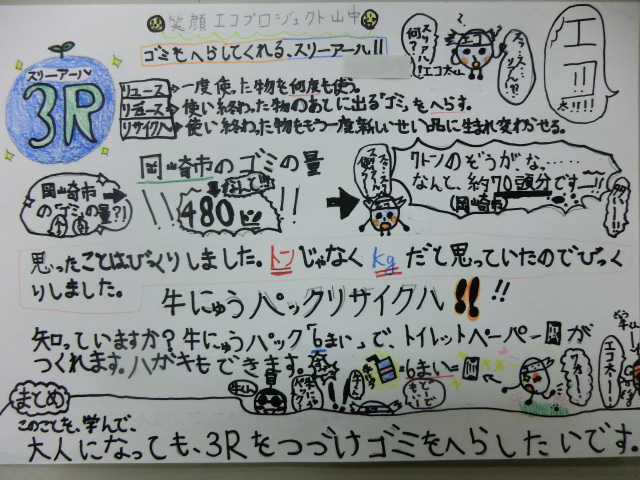 笑顔エコプロジェクト山中
ゴミをへらしてくれる、スリーアール!!
スリーアール
3R
リユース→一度使った物を何度も使う。
リデュース→使い終わった物のあとに出る「ゴミ」をへらす。
リサイクル→使い終わった物をもう一度新しいせい品に生まれ変わがせる。
スリーアール!?
何?
エコ太〜
エコ
太!!!!
岡崎市のゴミの量
岡崎市
の「ゴミ」の量?!
480トン!!
7トンのぞうがな……
なんと、約70頭分です―!!
(岡崎市)
思ったことはびっくりしました。トンじゃなくkgだと思っていたのでびっく
りしました。
牛にゅうパックリサイクル!!!!
知っていますか?牛にゅうパック「6まい」で、トイレットペーパーが
つくれます。ハガキもできます。
=6まい=
エコ太〜!
まとめ
このことを、学んで、
大人になっても、3Rをつづけゴミをへらしたいです。